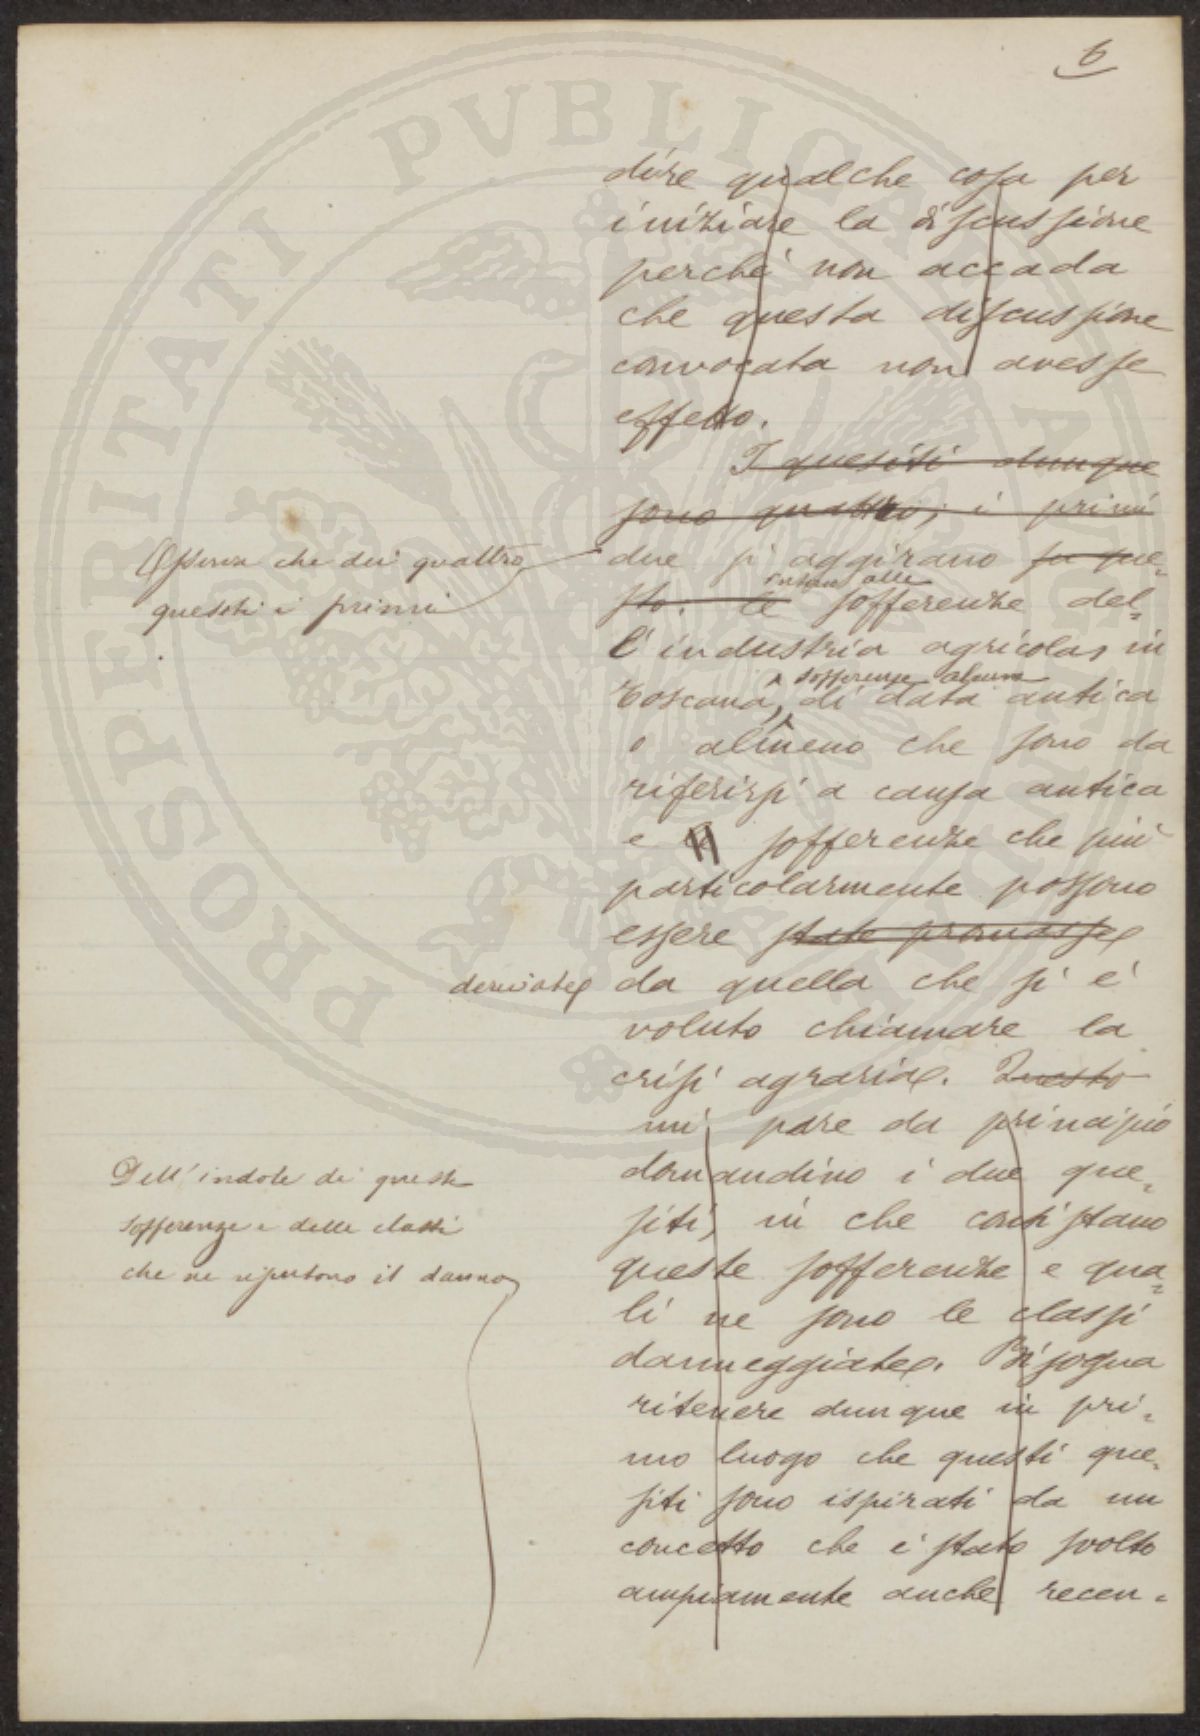 6
dire qualche cosa per
iniziare la discussione
perché non accada
che questa discussione
convocata non avesse
effetto.
I quesiti dunque
sono quattro; i primi
Osserva che dei quattro
quesiti i primi
due si aggirano su que=
sto. le alle sofferenze del=
l'industria agricola, in
sofferenze alcune
Toscana, di data antica
o almeno che sono da
riferirsi a causa antica
e le sofferenze che più
particolarmente possono
essere state promosse
derivate
da quella che si è
voluto chiamare la
crisi agraria. Questo
mi pare da principio
domandino i due que=
siti, in che consistano
queste sofferenze e qua=
li ne sono le classi
danneggiate. Bisogna
Dell'indole di queste
sofferenze e delle classi
che ne risentono il danno
ritenere dunque in pri=
mo luogo che questi que=
siti sono ispirati da un
concetto che è stato svolto
ampiamente anche recen=
PROSPERITATI PVBLICAE AVGENDAE